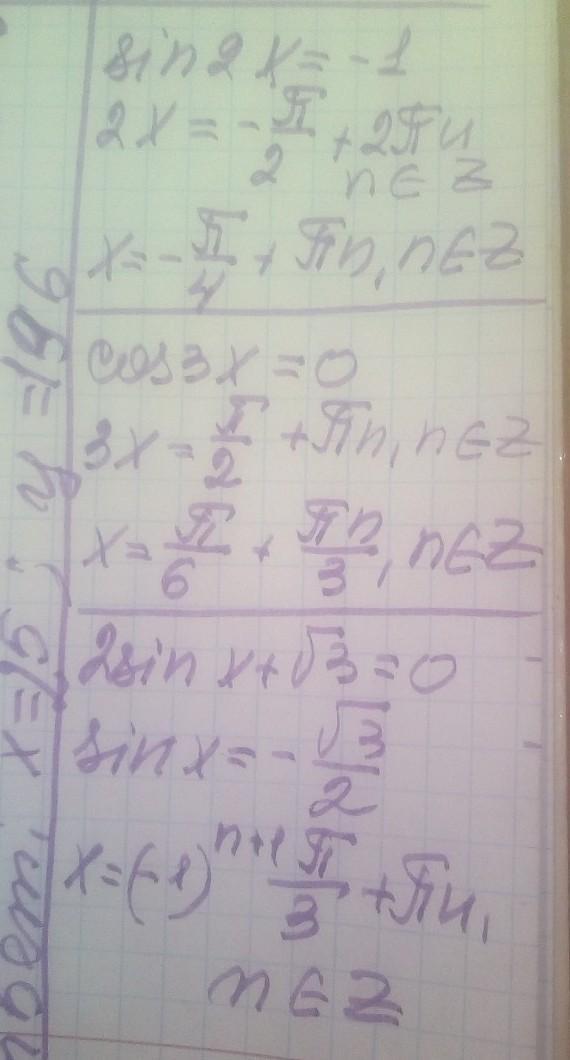 sin2x = -1
2x = -π/2 + 2πn
n ∈ Z
x = -π/4 + πn, n ∈ Z
cos3x = 0
3x = π/2 + πn, n ∈ Z
x = π/6 + πn/3, n ∈ Z
2sin x + √3 = 0
sin x = -√3/2
x = (-1)^{n+1} π/3 + πn,
n ∈ Z
x = 15; y = 196